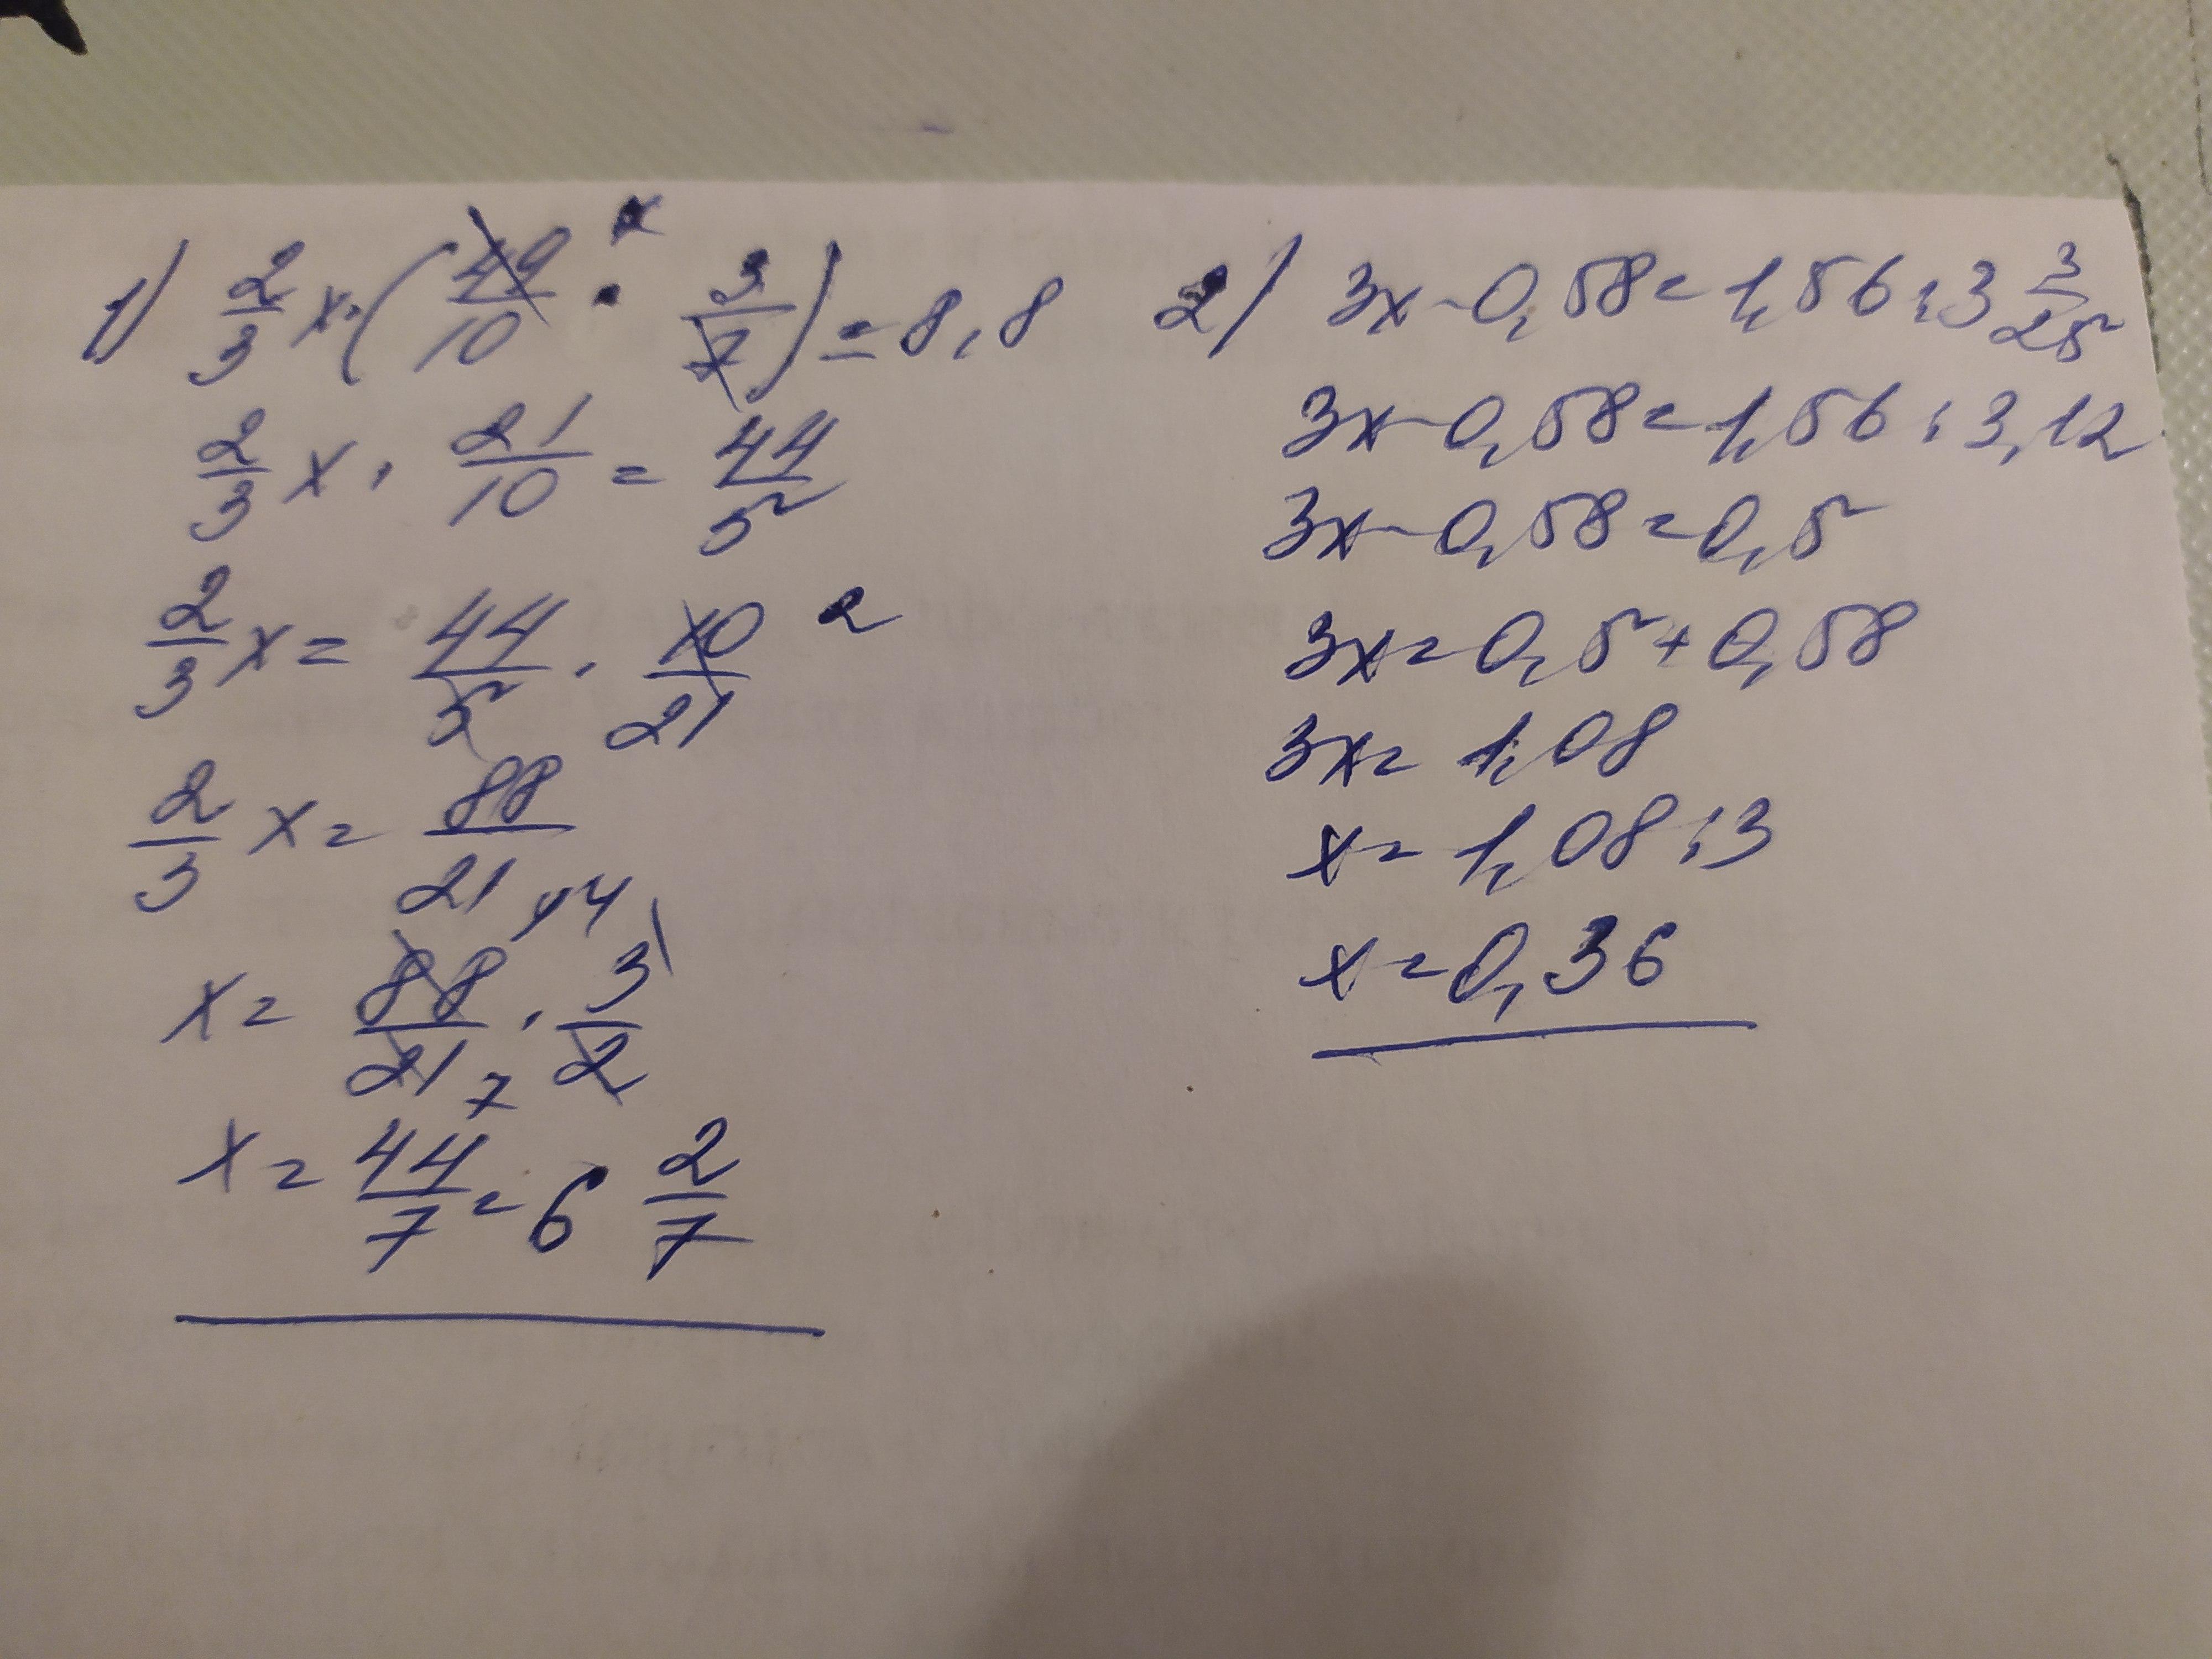 1) 2/3 x · (49/10 · 3/7) = 8,8
2/3 x · 21/10 = 44/5
2/3 x = 44/5 · 10/21 2
2/3 x = 88/21
x = 88/21 44 7 · 3/2 1
x = 44/7 = 6 2/7
2) 3x - 0,58 = 1,56 : 3 3/25
3x - 0,58 = 1,56 : 3,12
3x - 0,58 = 0,5
3x = 0,5 + 0,58
3x = 1,08
x = 1,08 : 3
x = 0,36